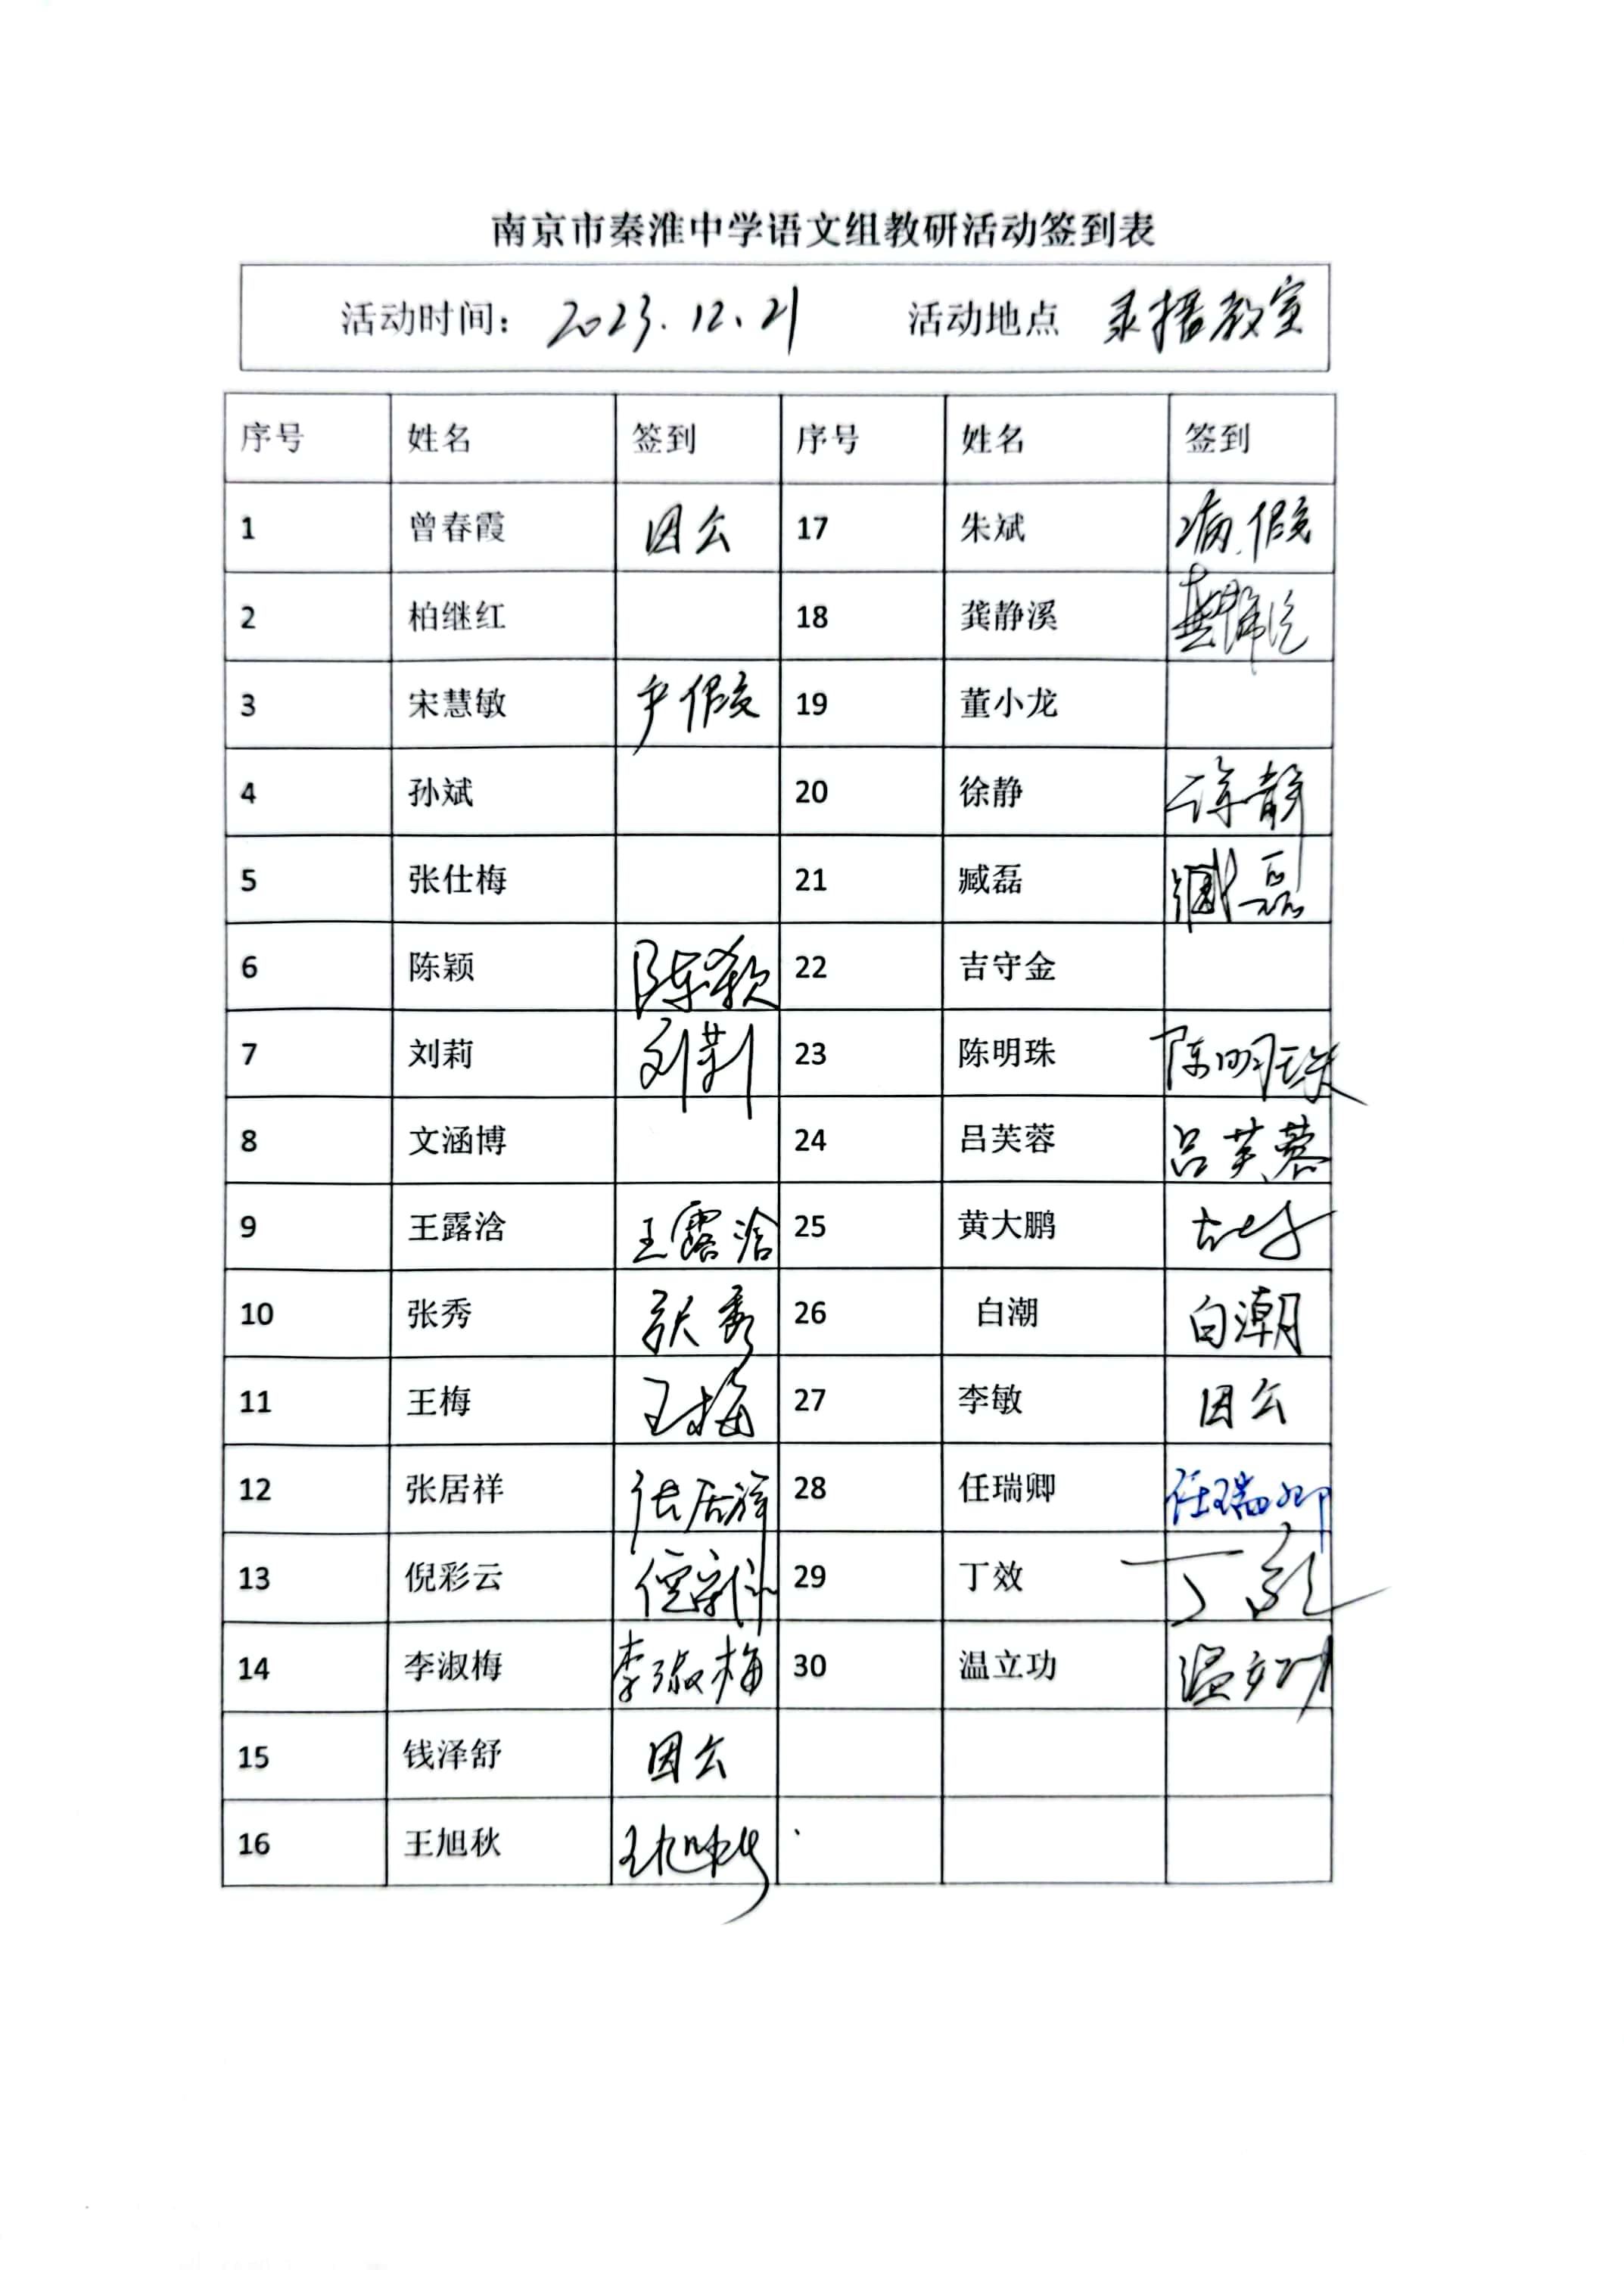 南京市秦淮中学语文组教研活动签到表
活动时间： 2023.12.21 活动地点 录播教室
序号 姓名 签到 序号 姓名 签到
1 曾春霞 因公 17 朱斌 病假
2 柏继红 18 龚静溪 龚静溪
3 宋慧敏 产假 19 董小龙
4 孙斌 20 徐静 徐静
5 张仕梅 21 臧磊 臧磊
6 陈颖 陈颖 22 吉守金
7 刘莉 刘莉 23 陈明珠 陈明珠
8 文涵博 24 吕芙蓉 吕芙蓉
9 王露浛 王露浛 25 黄大鹏
10 张秀 张秀 26 白潮 白潮
11 王梅 王梅 27 李敏 因公
12 张居祥 张居祥 28 任瑞卿 任瑞卿
13 倪彩云 倪彩云 29 丁效 丁效
14 李淑梅 李淑梅 30 温立功 温立功
15 钱泽舒 因公
16 王旭秋 王旭秋